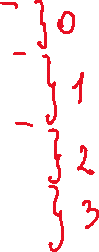 } 0
} 1
} 2
} 3